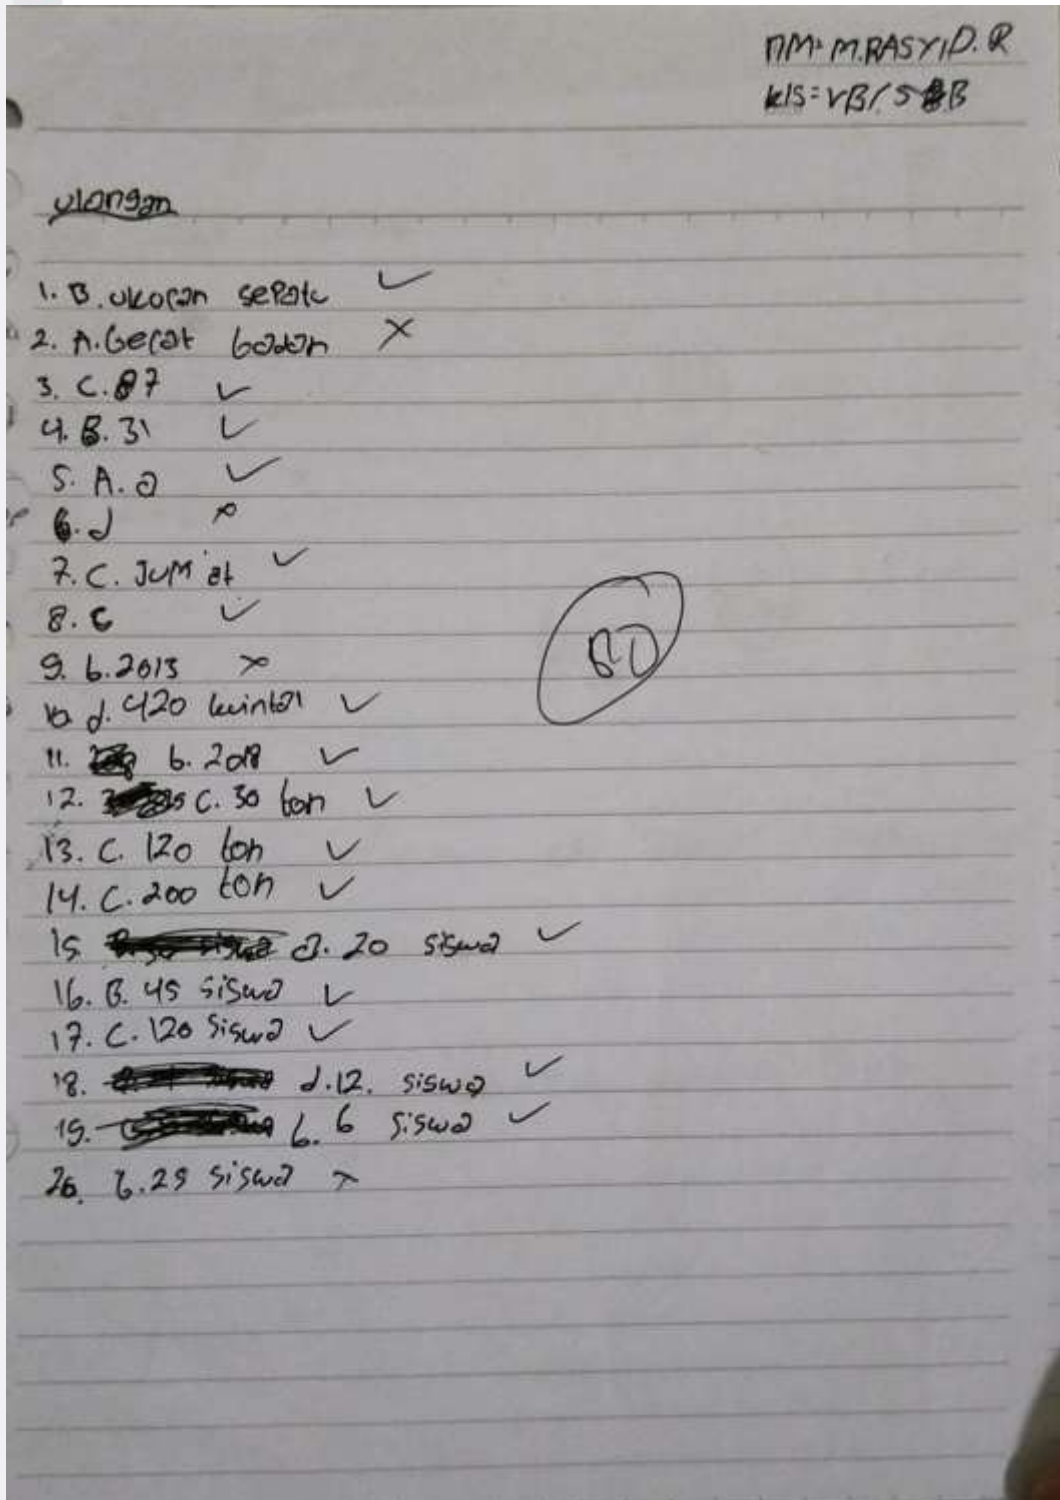 NM: M.RASYID.R
kls = VB/5 B
ulangan
1. B. ukoran sepatu ✓
2. A. berat badan ✗
3. C. 87 ✓
4. B. 31 ✓
5. A. a ✓
6. d ✗
7. C. JUM'at ✓
8. C ✓
9. b. 2013 ✗
10. d. 420 kwintal ✓
11. b. 2018 ✓
12. C. 30 ton ✓
13. C. 120 ton ✓
14. C. 200 ton ✓
15. a. 20 siswa ✓
16. B. 45 siswa ✓
17. C. 120 siswa ✓
18. d. 12. siswa ✓
19. b. 6 siswa ✓
20. b. 25 siswa ✗
80